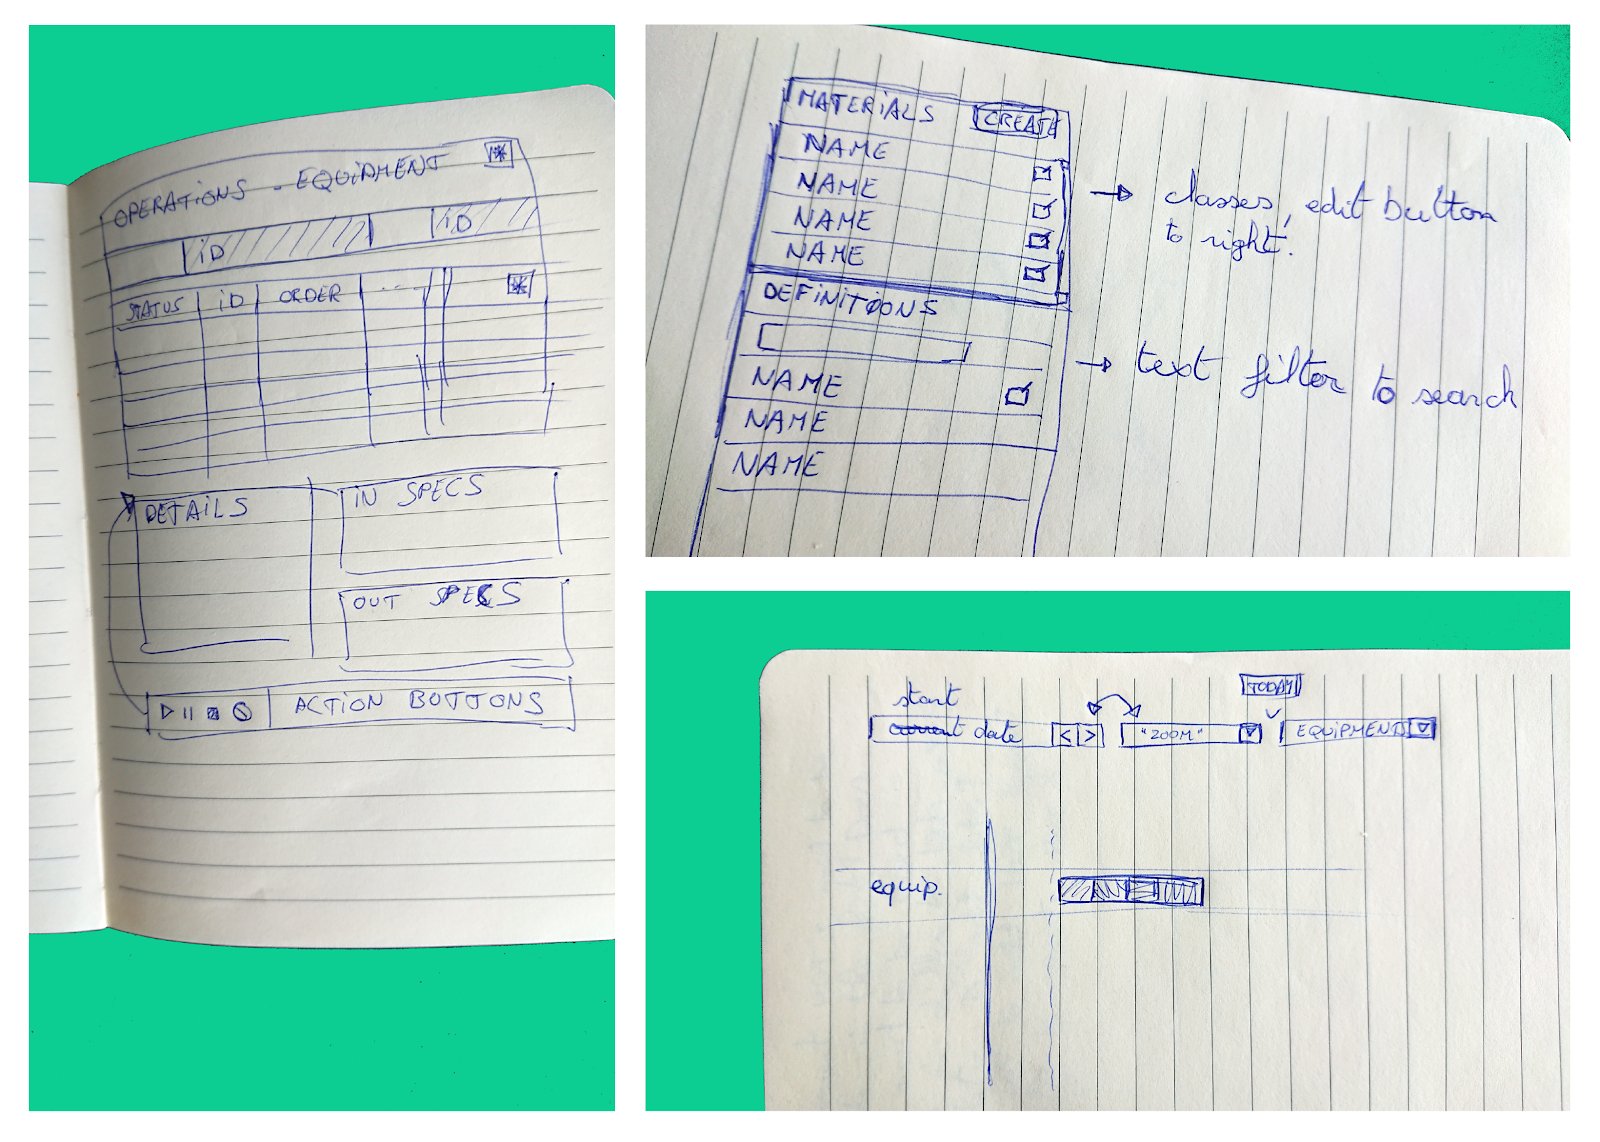 OPERATIONS - EQUIPMENT
ID ID
STATUS ID ORDER ....
DETAILS
IN SPECS
OUT SPECS
ACTION BUTTONS
MATERIALS CREATE
NAME
NAME
NAME
NAME
→ classes, edit button
to right.
DEFINITIONS
→ text filter to search
NAME
NAME
NAME
TODAY
start
current date < > "ZOOM" EQUIPMENTS
equip.